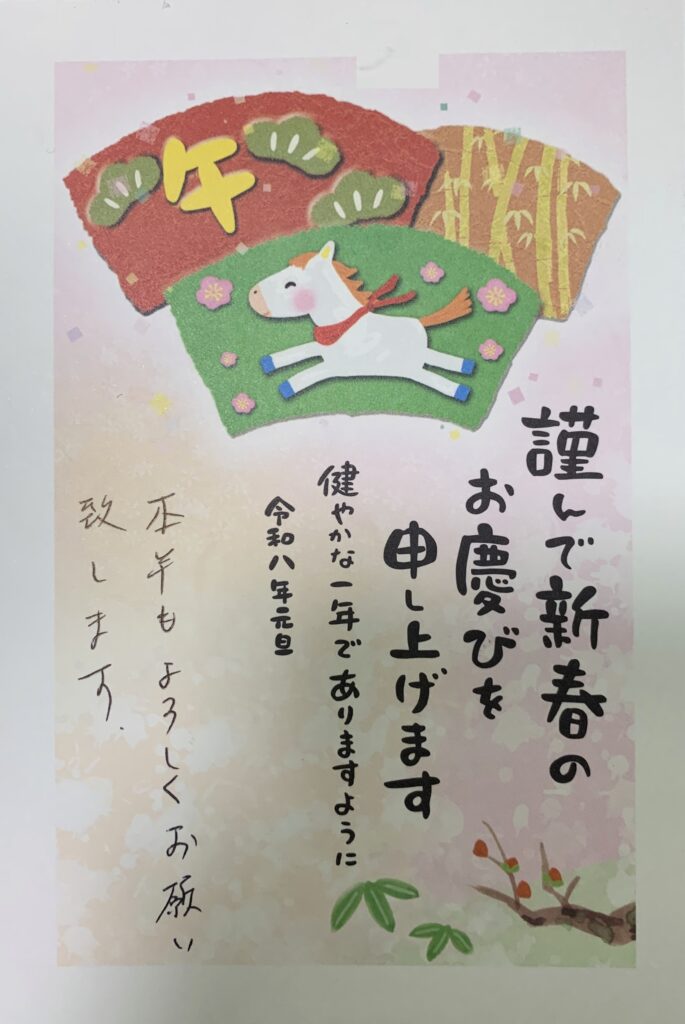 午
謹んで新春の
お慶びを
申し上げます
健やかな一年でありますように
令和八年元旦
本年もよろしくお願い
致します.